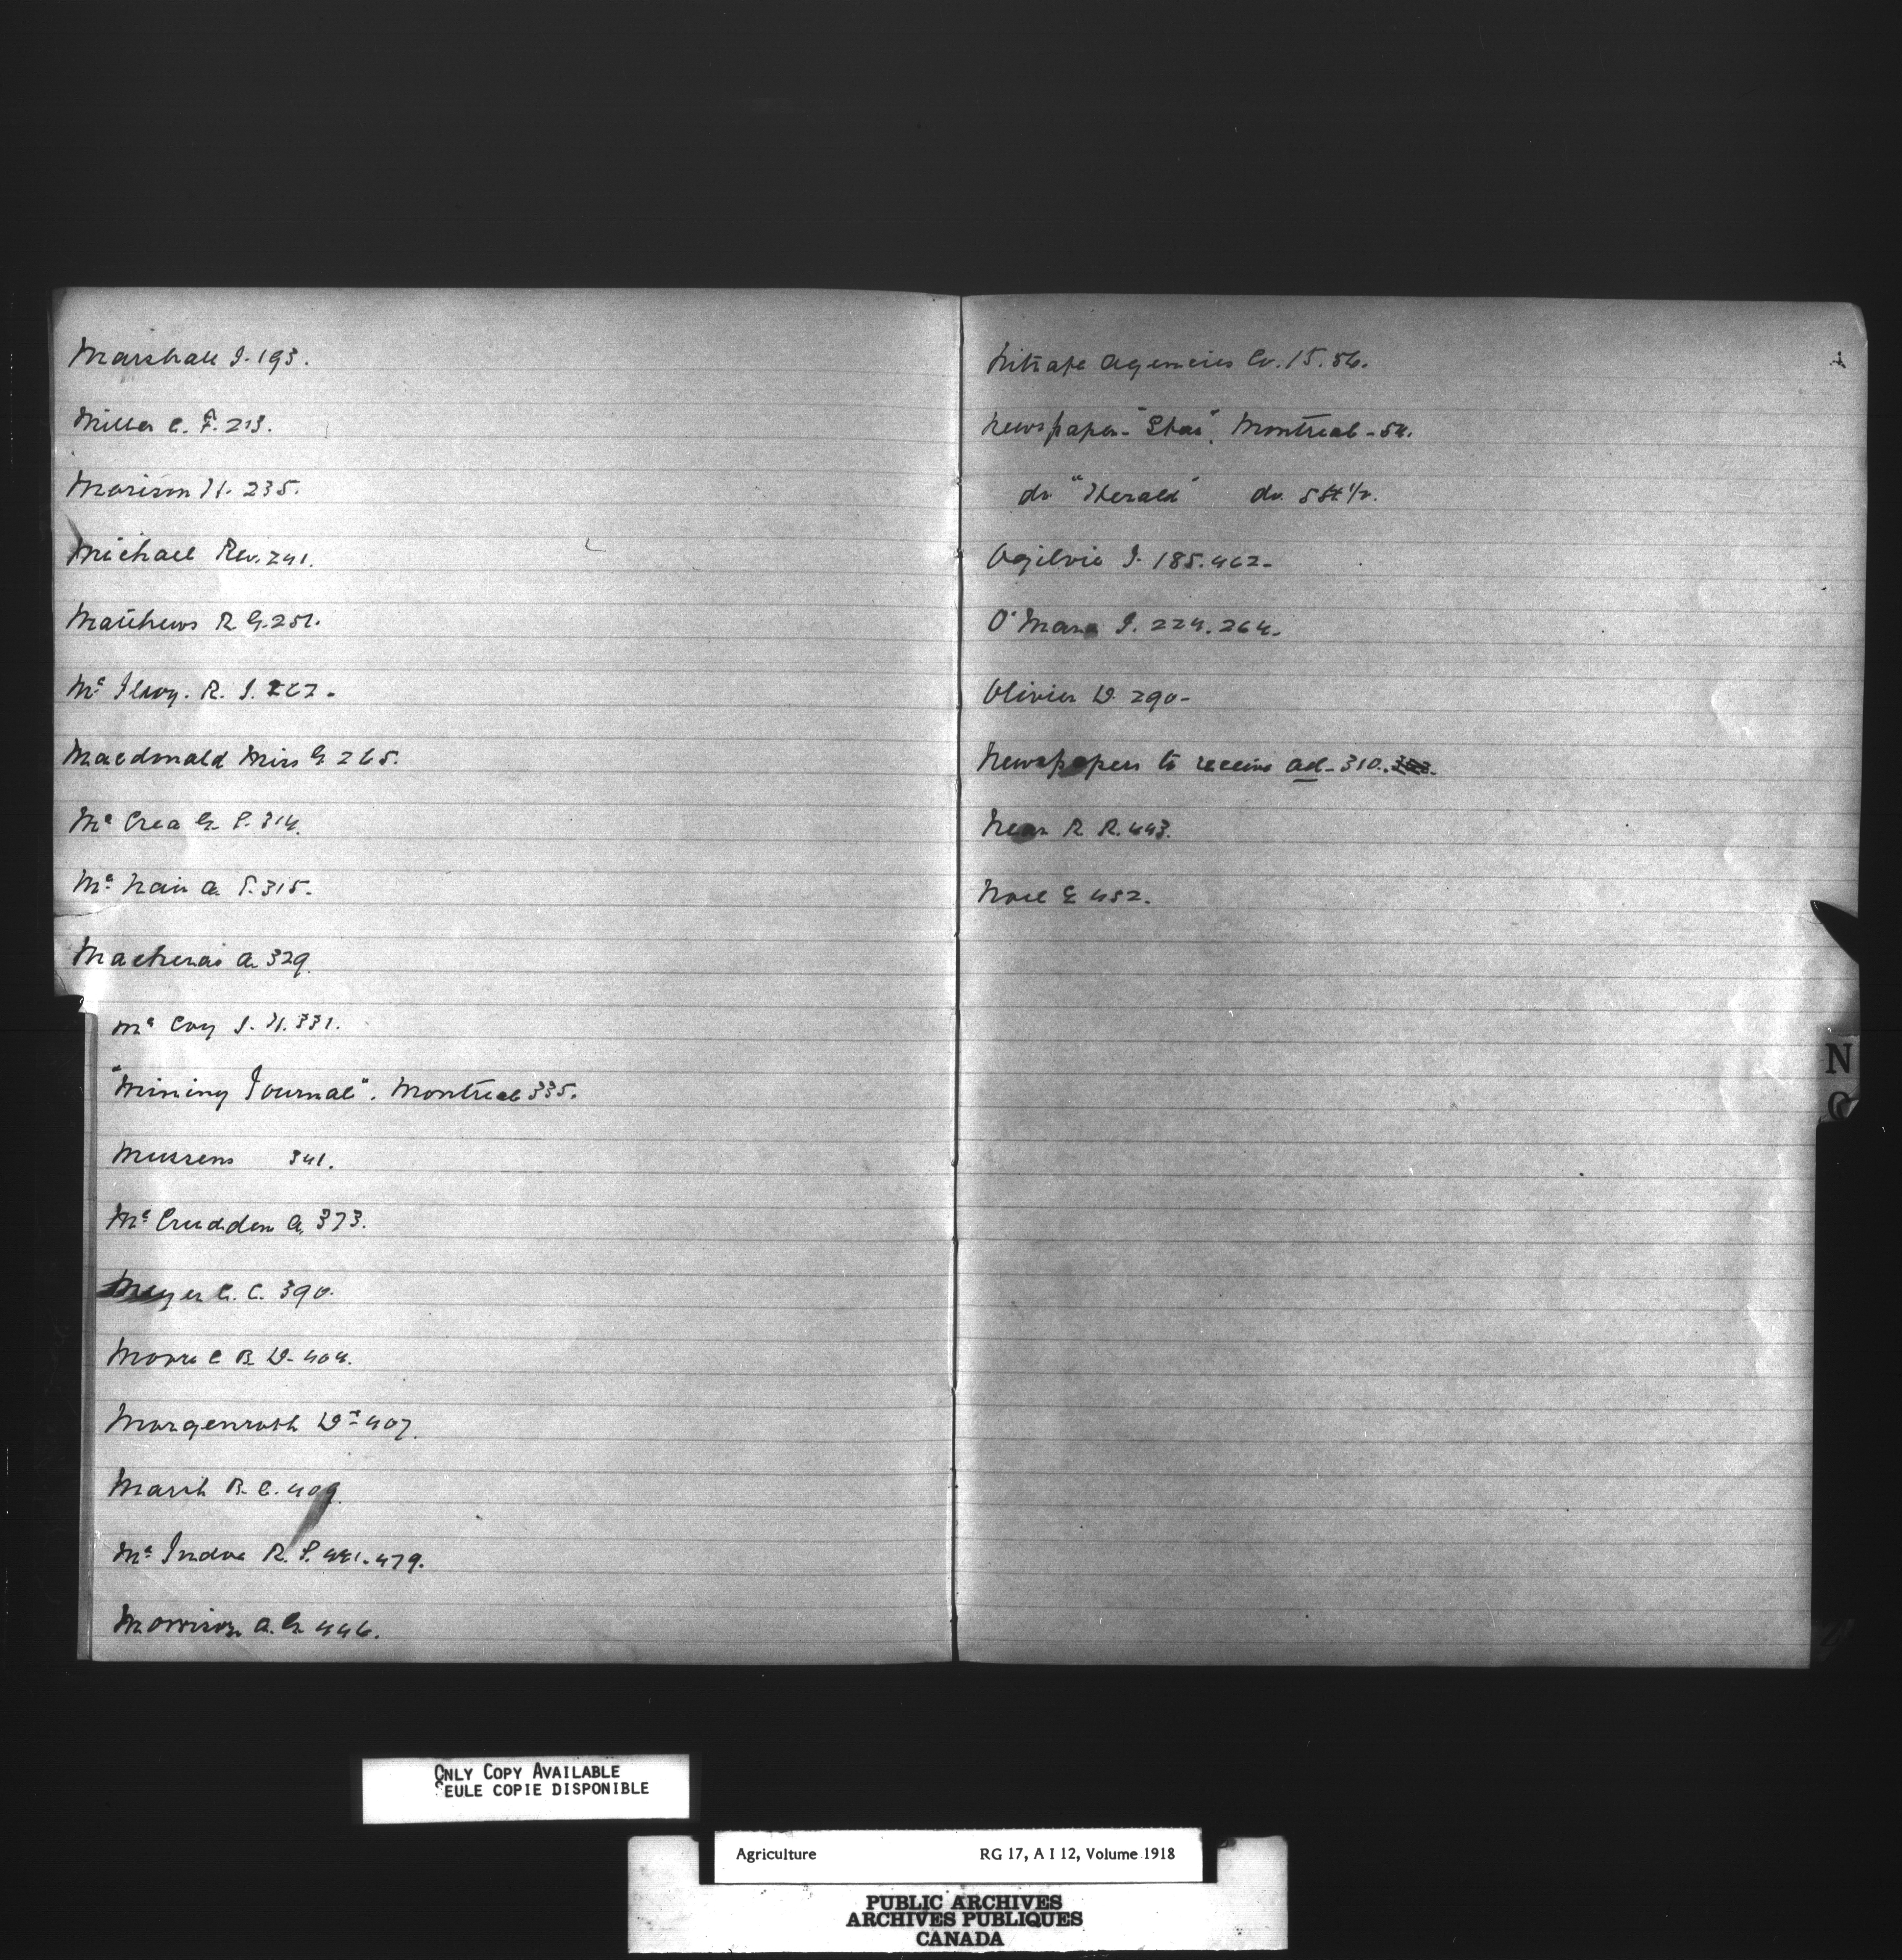 Marshall J. 193.
Miller C. F. 213.
Morison H. 235.
Michael Rev. 241.
Matthews R. G. 251.
Mc Ilroy. R. J. 262.
Macdonald Miss G 265.
Mc Crea G. P. 314.
Mc Nair A. P. 315.
A. 329.
Mc Coy J. H. 331.
"Mining Journal". Montreal 335.
Mussens 341.
Mc Crudden A. 373.
Meyer G. C. 390.
Moore C B D. 404.
Morgenroth Dr 407.
Marsh B. C. 409.
Mc Indoe R. P. 441. 479.
Morrison A. G. 446.
Nitrate Agencies Co. 15. 86.
Newspaper "Star". Montreal - 54.
do "Herald" do. 54 1/2.
Ogilvie J. 185. 462.
O'Mara J. 224. 264.
Olivier D. 290.
Newspapers to receive ad. 310.
Near R R. 443.
Noel E 452.
N
O
ONLY COPY AVAILABLE
SEULE COPIE DISPONIBLE
Agriculture RG 17, A I 12, Volume 1918
PUBLIC ARCHIVES
ARCHIVES PUBLIQUES
CANADA